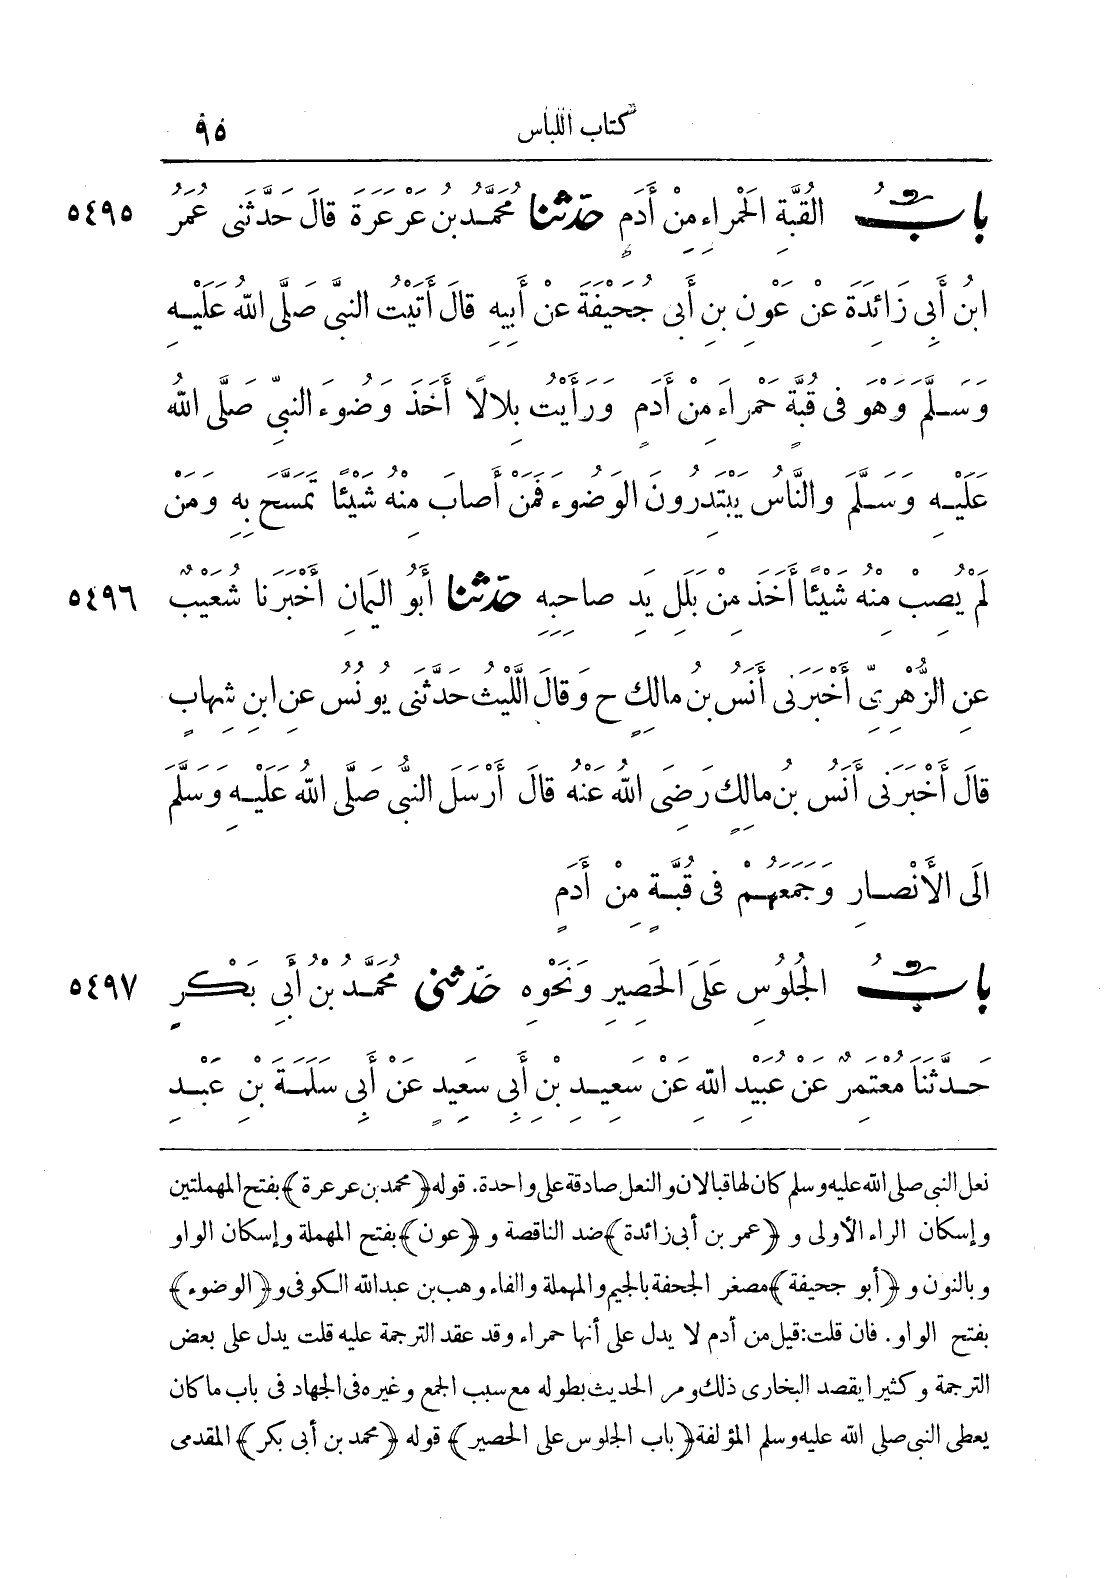 كتاب اللباس ٩٥
بابُ القُبَّةِ الحَمْراءِ مِنْ أَدَمٍ حدّثنا مُحَمَّدُ بنُ عَرْعَرَةَ قالَ حَدَّثَنى عُمَرُ ٥٤٩٥
ابنُ أَبِى زَائِدَةَ عَنْ عَوْنِ بنِ أَبى جُحَيْفَةَ عَنْ أَبِيهِ قالَ أَتَيْتُ النبىَّ صَلَّى اللهُ عَلَيْهِ
وَسَلَّمَ وَهْوَ فى قُبَّةٍ حَمْرَاءَ مِنْ أَدَمٍ وَرَأَيْتُ بِلالًا أَخَذَ وَضُوءَ النبىِّ صَلَّى اللهُ
عَلَيْهِ وَسَلَّمَ والنَّاسُ يَبْتَدِرُونَ الوَضُوءَ فَمَن أَصابَ مِنْهُ شَيْئًا تَمَسَّحَ بِهِ وَمَنْ
لَمْ يُصِبْ مِنْهُ شَيْئًا أَخَذَ مِنْ بَلَلِ يَدِ صاحِبِهِ حدّثنا أَبُو اليَمَانِ أَخْبَرَنا شُعَيْبٌ ٥٤٩٦
عنِ الزُّهْرِىِّ أَخْبَرَنى أَنَسُ بنُ مالِكٍ ح وَقالَ اللَّيْثُ حَدَّثَنى يُونُسُ عَنِ ابنِ شِهابٍ
قالَ أَخْبَرَنى أَنَسُ بنُ مالِكٍ رَضِىَ اللهُ عَنْهُ قالَ أَرْسَلَ النبىُّ صَلَّى اللهُ عَلَيْهِ وَسَلَّمَ
الَى الأَنْصارِ وَجَمَعَهُمْ فى قُبَّةٍ مِنْ أَدَمٍ
بابُ الجُلُوسِ عَلَى الحَصِيرِ وَنَحْوِهِ حدّثنى مُحَمَّدُ بنُ أَبى بَكْرٍ ٥٤٩٧
حَدَّثَنَا مُعْتَمِرٌ عَنْ عُبَيْدِ اللهِ عَنْ سَعِيدِ بْنِ أَبِى سَعِيدٍ عَنْ أَبِى سَلَمَةَ بْنِ عَبْدِ
نعل النبى صلى الله عليه وسلم كان لها قبالان والنعل صادقة على واحدة. قوله ﴿محمد بن عرعرة﴾ بفتح المهملتين
وإسكان الراء الأولى و ﴿عمر بن أبى زائدة﴾ ضد الناقصة و ﴿عون﴾ بفتح المهملة وإسكان الواو
وبالنون و ﴿أبو جحيفة﴾ مصغر الجحفة بالجيم والمهملة والفاء وهب بن عبدالله الكوفى و ﴿الوضوء﴾
بفتح الواو. فان قلت: قيل من أدم لا يدل على أنها حمراء وقد عقد الترجمة عليه قلت يدل على بعض
الترجمة وكثيرا يقصد البخارى ذلك ومر الحديث بطوله مع سبب الجمع وغيره فى الجهاد فى باب ما كان
يعطى النبى صلى الله عليه وسلم المؤلفة ﴿باب الجلوس على الحصير﴾ قوله ﴿محمد بن أبى بكر﴾ المقدمى